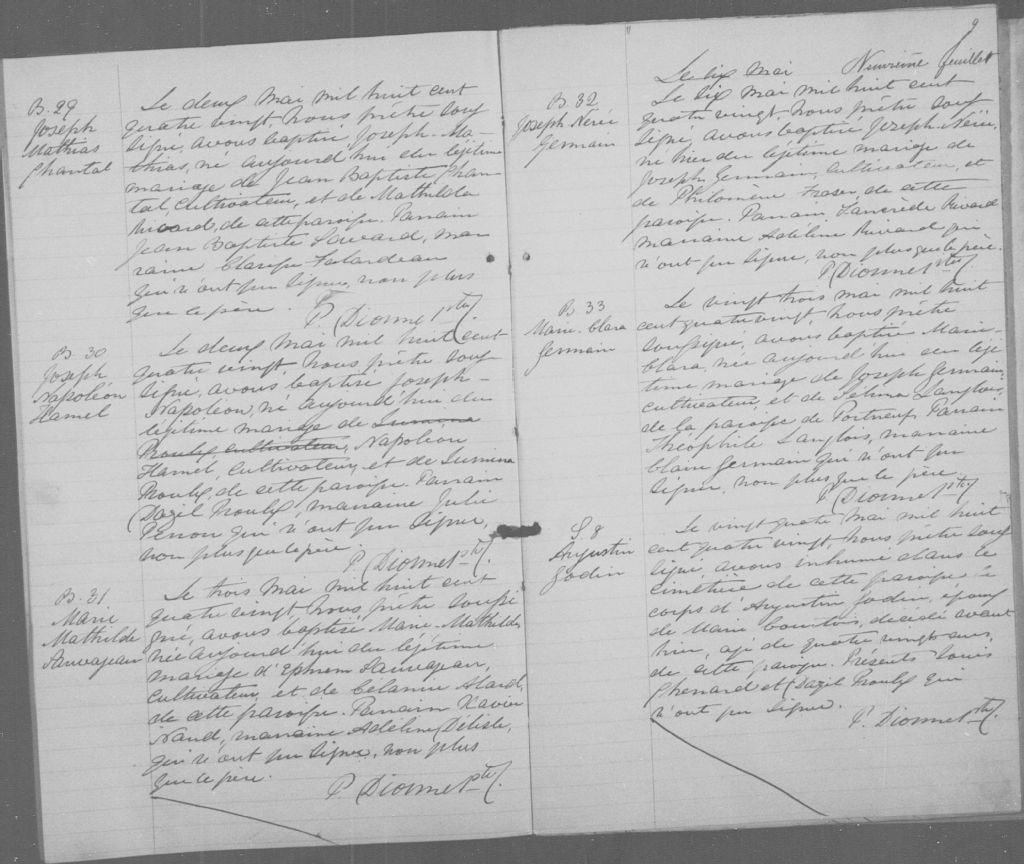 B. 29
Joseph
Mathias
Chantal
Le deux mai mil huit cent
quatre vingt, nous prêtre sous
signé, avons baptisé Joseph-Ma-
thias, né aujourd'hui du légitime
mariage de Jean Baptiste Chan-
tal, cultivateur, et de Mathilda
Rivard, de cette paroisse. Parrain
Jean Baptiste Savard, mar
raine Clarisse Falardeau
qui n'ont pu signer, non plus
que le père.
P. Dionne Ptre.
B. 30
Joseph
Napoléon
Hamel
Le deux mai mil huit cent
quatre vingt, nous prêtre sous
signé, avons baptisé Joseph-
Napoléon, né aujourd'hui du
légitime mariage de Lumina
Noulx cultivateur, Napoléon
Hamel, cultivateur, et de Lumina
Noulx, de cette paroisse. Parrain
Dazil Noulx, marraine Julie
Perron qui n'ont pu signer,
non plus que le père.
P. Dionne Ptre.
B. 31
Marie
Mathilde
Sauvageau
Le trois mai mil huit cent
quatre vingt, nous prêtre soussi
gné, avons baptisé Marie-Mathilde,
née aujourd'hui du légitime
mariage d'Ephrem Sauvageau,
cultivateur, et de Célanire Alard,
de cette paroisse. Parrain Xavier
Naud, marraine Adéline Délisle,
qui n'ont pu signer, non plus
que le père.
P. Dionne Ptre.
9
Neuvième feuillet
B. 32
Joseph Néré
Germain
Le six mai
Le six mai mil huit cent
quatre vingt, nous prêtre sous
signé, avons baptisé Joseph-Néré,
né hier du légitime mariage de
Joseph Germain, cultivateur, et
de Philomène Fraser, de cette
paroisse. Parrain, Tancrède Rivard
marraine Adéline Rivard qui
n'ont pu signer, non plus que le père.
P. Dionne Ptre.
B. 33
Marie-Clara
Germain
Le vingt trois mai mil huit
cent quatre vingt, nous prêtre
soussigné, avons baptisé Marie-
Clara, née aujourd'hui du légi
time mariage de Joseph Germain,
cultivateur, et de Félina Langlois,
de la paroisse de Portneuf. Parrain
Théophile Langlois, marraine
Claire Germain qui n'ont pu
signer, non plus que le père.
P. Dionne Ptre.
S. 8
Augustin
Godin
Le vingt quatre mai mil huit
cent quatre vingt, nous prêtre sous
signé avons inhumé dans le
cimetière de cette paroisse, le
corps d'Augustin Godin, époux
de Marie, décédé avant
hier, agé de quatre vingts ans,
de cette paroisse. Présents Louis
Chenard et Dazil Noulx qui
n'ont pu signer.
P. Dionne Ptre.